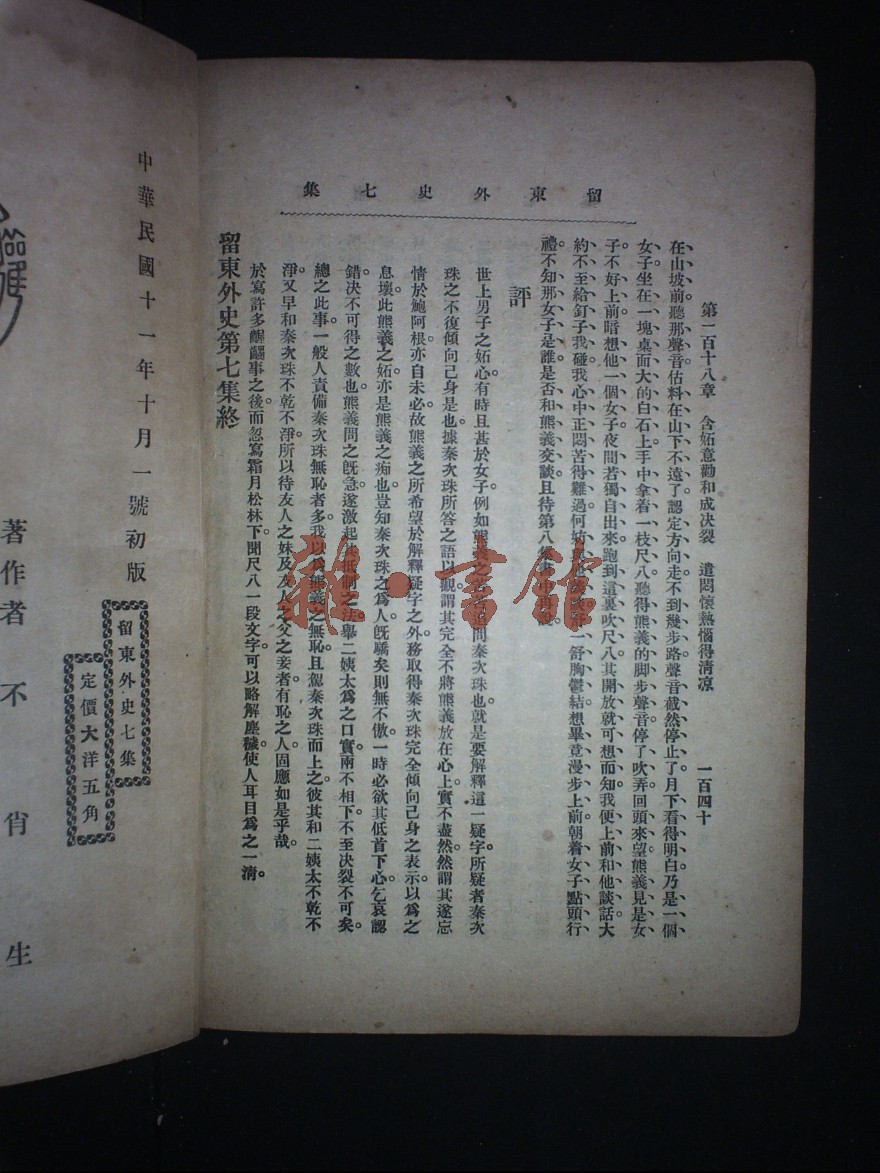 留東外史七集
第一百十八章 含妬意勸和成決裂 遣悶懷熱惱得清凉 一百四十
在山坡前聽那聲音估料在山下不遠了認定方向走不到幾步路聲音截然停止了月下看得明白乃是一個
女子坐在一塊桌面大的白石上手中拿着一枝尺八聽得熊義的脚步聲音停了吹弄回頭來望熊義見是女
子不好上前暗想他一個女子夜間若獨自出來跑到這裏吹尺八其開放就可想而知我便上前和他談話大
約不至給釘子我碰我心中正悶苦得難過何妨舒胸鬱結想畢竟漫步上前朝着女子點頭行
禮不知那女子是誰是否和熊義交談且待第八集
評
世上男子之妬心有時且甚於女子例如熊義之問秦次珠也就是要解釋這一疑字所疑者秦次
珠之不復傾向己身是也據秦次珠所答之語以觀謂其完全不將熊義放在心上實不盡然然謂其遂忘
情於鮑阿根亦自未必故熊義之所希望於解釋疑字之外務取得秦次珠完全傾向己身之表示以爲之
息壤此熊義之妬亦是熊義之痴也豈知秦次珠之爲人旣驕矣則無不傲一時必欲其低首下心乞哀認
錯決不可得之數也熊義問之旣急遂激起其抵制之法舉二姨太爲之口實兩不相下不至決裂不可矣
總之此事一般人責備秦次珠無恥者多我以爲熊義之無恥且駕秦次珠而上之彼其和二姨太不乾不
淨又早和秦次珠不乾不淨所以待友人之妹及友人之父之妾者有恥之人固應如是乎哉
於寫許多齷齪事之後而忽寫霜月松林下聞尺八一段文字可以略解塵穢使人耳目爲之一淸
留東外史第七集終
中華民國十一年十月一號初版
留東外史七集
定價大洋五角
著作者 不肖生
雜·書館